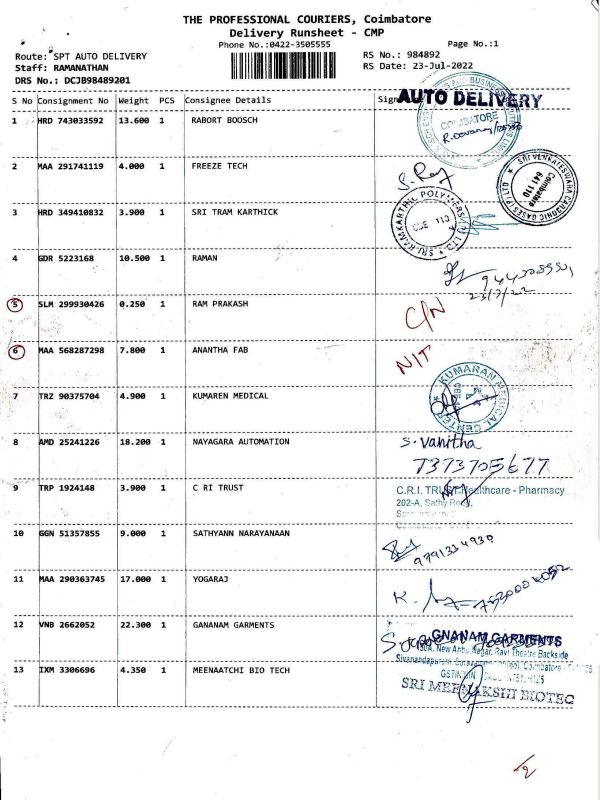 THE PROFESSIONAL COURIERS, Coimbatore
Delivery Runsheet - CMP
Phone No.:0422-3505555
Page No.:1
Route: SPT AUTO DELIVERY
RS No.: 984892
Staff: RAMANATHAN
RS Date: 23-Jul-2022
DRS No.: DCJB98489201
S No Consignment No Weight PCS Consignee Details Sign
AUTO DELIVERY
1 HRD 743033592 13.600 1 RABORT BOOSCH
COIMBATORE
2 MAA 291741119 4.000 1 FREEZE TECH
SRI VENKATESWARA CARBONIC GASES (P) LTD
Coimbatore
641 110
3 HRD 349410832 3.900 1 SRI TRAM KARTHICK
SRI RAMKARTHIC POLYMERS (P) LTD.
4 GDR 5223168 10.500 1 RAMAN
23/7/22
5 SLM 299930426 0.250 1 RAM PRAKASH
C/N
6 MAA 568287298 7.800 1 ANANTHA FAB
N/T
7 TRZ 90375704 4.900 1 KUMAREN MEDICAL
KUMARAN MEDICAL CENTER
8 AMD 25241226 18.200 1 NAYAGARA AUTOMATION
S. Vanitha
7373705677
9 TRP 1924148 3.900 1 C RI TRUST
C.R.I. TRUST Healthcare - Pharmacy
202-A, Sathy Road,
10 GGN 51357855 9.000 1 SATHYANN NARAYANAAN
9791334930
11 MAA 290363745 17.000 1 YOGARAJ
K.
12 VNB 2662052 22.300 1 GANANAM GARMENTS
GNANAM GARMENTS
New Anbu Nagar, Ravi Theatre Backside
Sivanandapuram, Coimbatore
GSTIN
13 IXM 3306696 4.350 1 MEENAATCHI BIO TECH
SRI MEENAKSHI BIOTEC